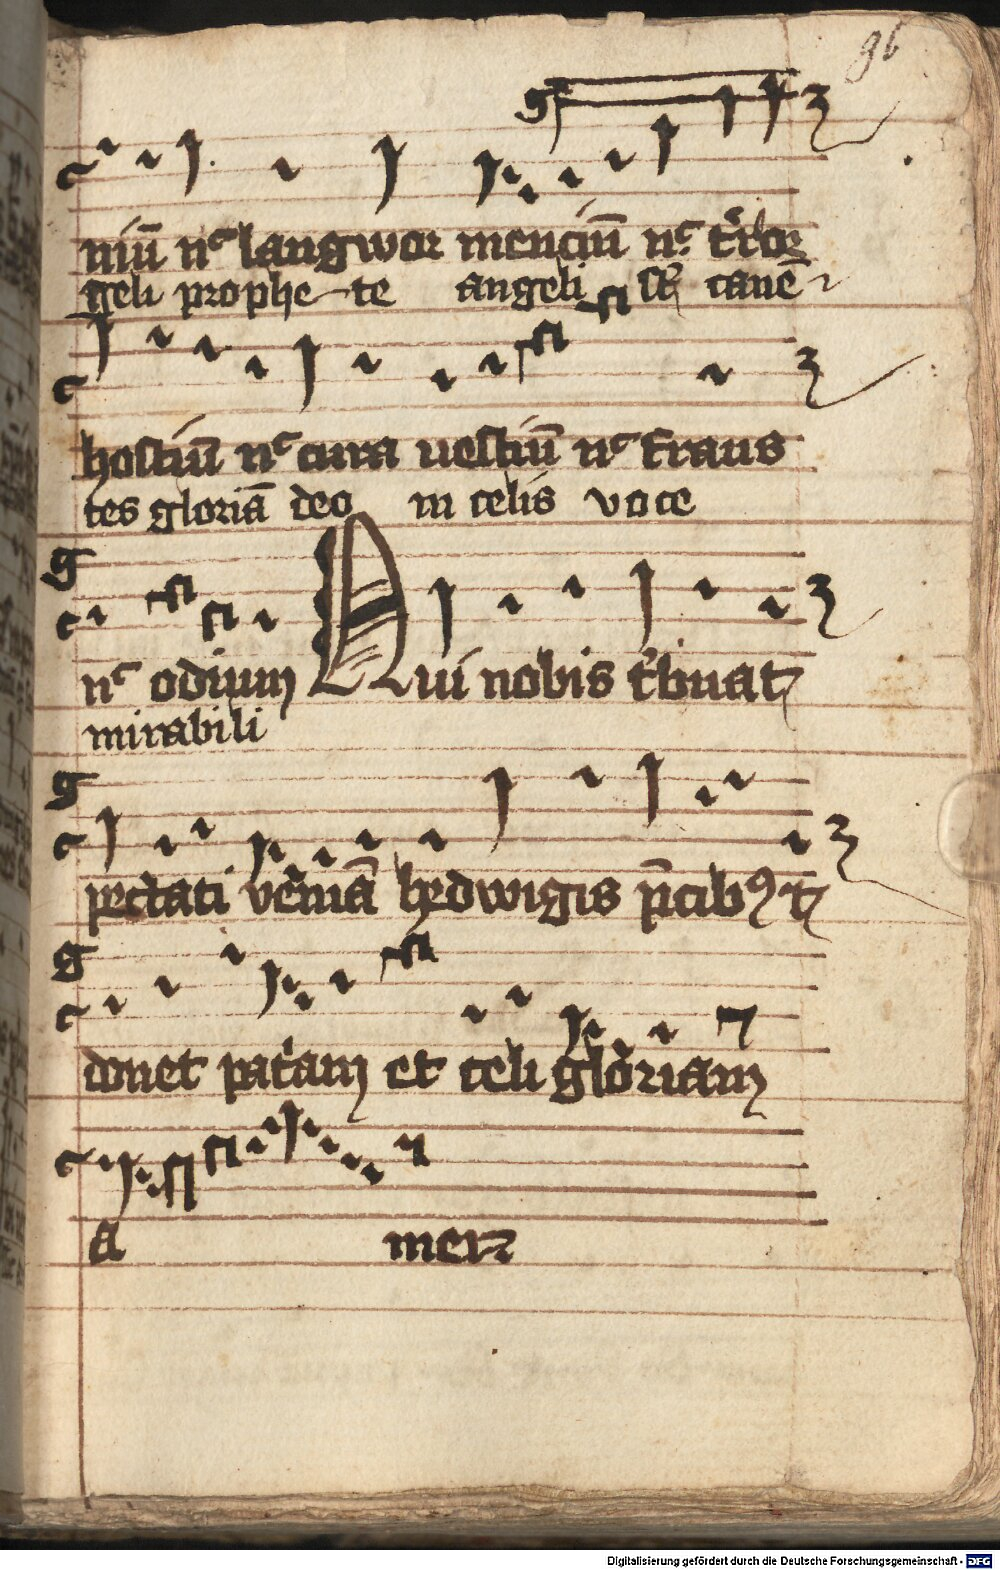 96
niū nc langwor menciū nc t'ror
geli prophe-te angeli sc̄ canē
hostiū nc cura uestiū nc fraus
tes gloriā deo in celis voce
nc odium Qui nobis t'buat
mirabili
peccati veniā hedwigis pncib9 t
donet patriam et celi gloriam
a men
Digitalisierung gefördert durch die Deutsche Forschungsgemeinschaft - DFG